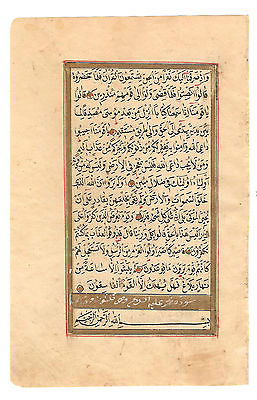 وَاِذْ صَرَفْنَا اِلَيْكَ نَفَرًا مِنَ الْجِنِّ يَسْتَمِعُونَ الْقُرْاٰنَ فَلَمَّا حَضَرُوهُ
قَالُوا اَنْصِتُوا فَلَمَّا قُضِيَ وَلَّوْا اِلٰى قَوْمِهِمْ مُنْذِرِينَ
قَالُوا يَا قَوْمَنَا اِنَّا سَمِعْنَا كِتَابًا اُنْزِلَ مِنْ بَعْدِ مُوسٰى مُصَدِّقًا لِمَا
بَيْنَ يَدَيْهِ يَهْدِي اِلَى الْحَقِّ وَاِلٰى طَرِيقٍ مُسْتَقِيمٍ يَا قَوْمَنَا اَجِيبُوا
دَاعِيَ اللّٰهِ وَاٰمِنُوا بِهِ يَغْفِرْ لَكُمْ مِنْ ذُنُوبِكُمْ وَيُجِرْكُمْ مِنْ عَذَابٍ اَلِيمٍ
وَمَنْ لَا يُجِبْ دَاعِيَ اللّٰهِ فَلَيْسَ بِمُعْجِزٍ فِي الْاَرْضِ وَلَيْسَ لَهُ مِنْ دُونِهِ
اَوْلِيَاءُ اُولٰئِكَ فِي ضَلَالٍ مُبِينٍ اَوَلَمْ يَرَوْا اَنَّ اللّٰهَ الَّذِي
خَلَقَ السَّمٰوَاتِ وَالْاَرْضَ وَلَمْ يَعْيَ بِخَلْقِهِنَّ بِقَادِرٍ عَلٰى
اَنْ يُحْيِيَ الْمَوْتٰى بَلٰى اِنَّهُ عَلٰى كُلِّ شَيْءٍ قَدِيرٌ وَيَوْمَ يُعْرَضُ الَّذِينَ
كَفَرُوا عَلَى النَّارِ اَلَيْسَ هٰذَا بِالْحَقِّ قَالُوا بَلٰى وَرَبِّنَا قَالَ فَذُوقُوا الْعَذَابَ بِمَا كُنْتُمْ
تَكْفُرُونَ فَاصْبِرْ كَمَا صَبَرَ اُولُوا الْعَزْمِ مِنَ الرُّسُلِ وَلَا تَسْتَعْجِلْ لَهُمْ
كَاَنَّهُمْ يَوْمَ يَرَوْنَ مَا يُوعَدُونَ لَمْ يَلْبَثُوا اِلَّا سَاعَةً مِنْ
نَهَارٍ بَلَاغٌ فَهَلْ يُهْلَكُ اِلَّا الْقَوْمُ الْفَاسِقُونَ
سورة محمد عليه السلام
بِسْمِ اللّٰهِ الرَّحْمٰنِ الرَّحِيمِ